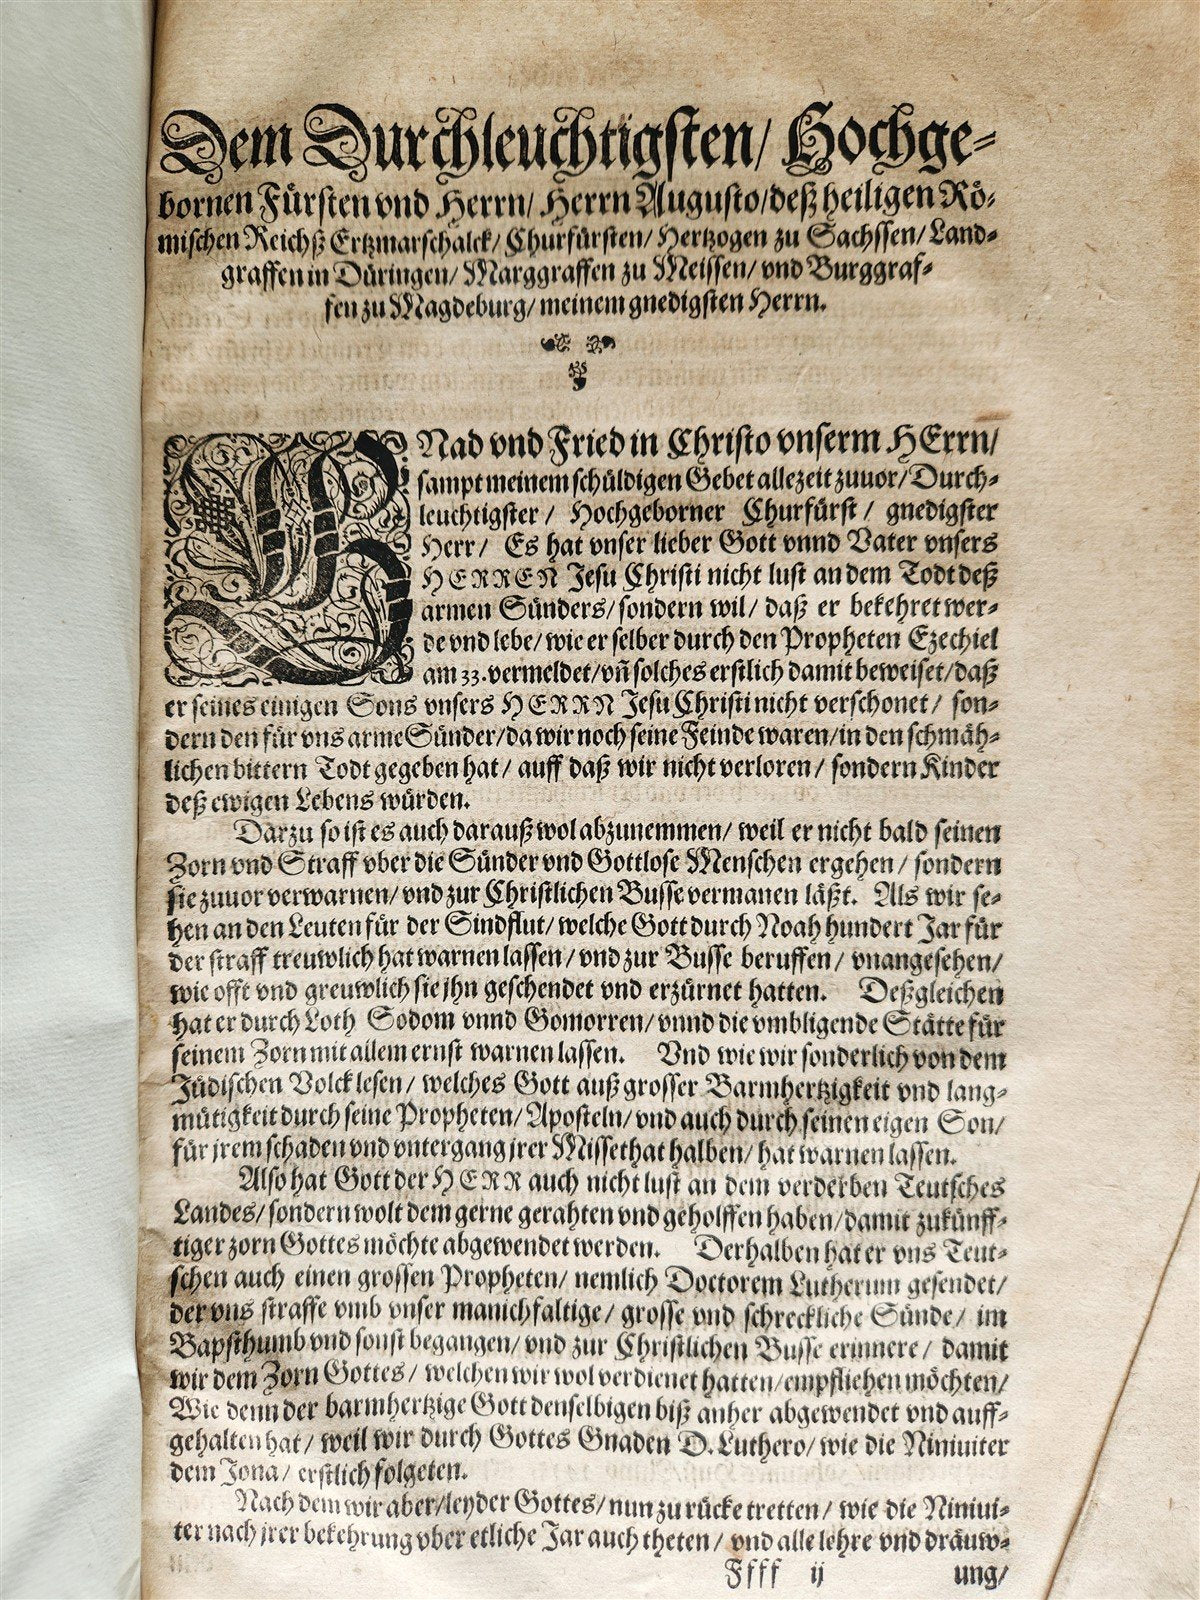 Dem Durchleuchtigsten/ Hochge-
bornen Fürsten vnd Herrn/ Herrn Augusto/ deß heiligen Rö-
mischen Reichß Ertzmarschalck/ Churfürsten/ Hertzogen zu Sachssen/ Land-
graffen in Düringen/ Marggraffen zu Meissen/ vnd Burggraf-
fen zu Magdeburg/ meinem gnedigsten Herrn.
GNad vnd Fried in Christo vnserm HErrn/
sampt meinem schüldigen Gebet allezeit zuuor/ Durch-
leuchtigster/ Hochgeborner Churfürst/ gnedigster
Herr/ Es hat vnser lieber Gott vnnd Vater vnsers
HERREN Jesu Christi nicht lust an dem Todt deß
armen Sünders/ sondern wil/ daß er bekehret wer-
de vnd lebe/ wie er selber durch den Propheten Ezechiel
am 33. vermeldet/ vñ solches erstlich damit beweiset/ daß
er seines einigen Sons vnsers HERRN Jesu Christi nicht verschonet/ son-
dern den für vns arme Sünder/ da wir noch seine Feinde waren/ in den schmäh-
lichen bittern Todt gegeben hat/ auff daß wir nicht verloren/ sondern Kinder
deß ewigen Lebens würden.
Darzu so ist es auch darauß wol abzunemmen/ weil er nicht bald seinen
Zorn vnd Straff vber die Sünder vnd Gottlose Menschen ergehen/ sondern
sie zuuor verwarnen/ vnd zur Christlichen Busse vermanen läßt. Als wir se-
hen an den Leuten für der Sindflut/ welche Gott durch Noah hundert Jar für
der straff treuwlich hat warnen lassen/ vnd zur Busse beruffen/ vnangesehen/
wie offt vnd greuwlich sie jhn geschendet vnd erzürnet hatten. Deßgleichen
hat er durch Loth Sodom vnnd Gomorren/ vnnd die vmbligende Stätte für
seinem Zorn mit allem ernst warnen lassen. Vnd wie wir sonderlich von dem
Jüdischen Volck lesen/ welches Gott auß grosser Barmhertzigkeit vnd lang-
mütigkeit durch seine Propheten/ Aposteln/ vnd auch durch seinen eigen Son/
für jrem schaden vnd vntergang jrer Missethat halben/ hat warnen lassen.
Also hat Gott der HERR auch nicht lust an dem verderben Teutsches
Landes/ sondern wolt dem gerne gerahten vnd geholffen haben/ damit zukünff-
tiger zorn Gottes möchte abgewendet werden. Derhalben hat er vns Teut-
schen auch einen grossen Propheten/ nemlich Doctorem Lutherum gesendet/
der vns straffe vmb vnser manichfaltige/ grosse vnd schreckliche Sünde/ im
Bapsthumb vnd sonst begangen/ vnd zur Christlichen Busse erinnere/ damit
wir dem Zorn Gottes/ welchen wir wol verdienet hatten/ empfliehen möchten/
Wie denn der barmhertzige Gott denselbigen biß anher abgewendet vnd auff-
gehalten hat/ weil wir durch Gottes Gnaden D. Luthero/ wie die Niniuiter
dem Jona/ erstlich folgeten.
Nach dem wir aber/ leyder Gottes/ nun zu rücke tretten/ wie die Niniui-
ter nach jrer bekehrung vber etliche Jar auch theten/ vnd alle lehre vnd dräuw-
Ffff ij ung/